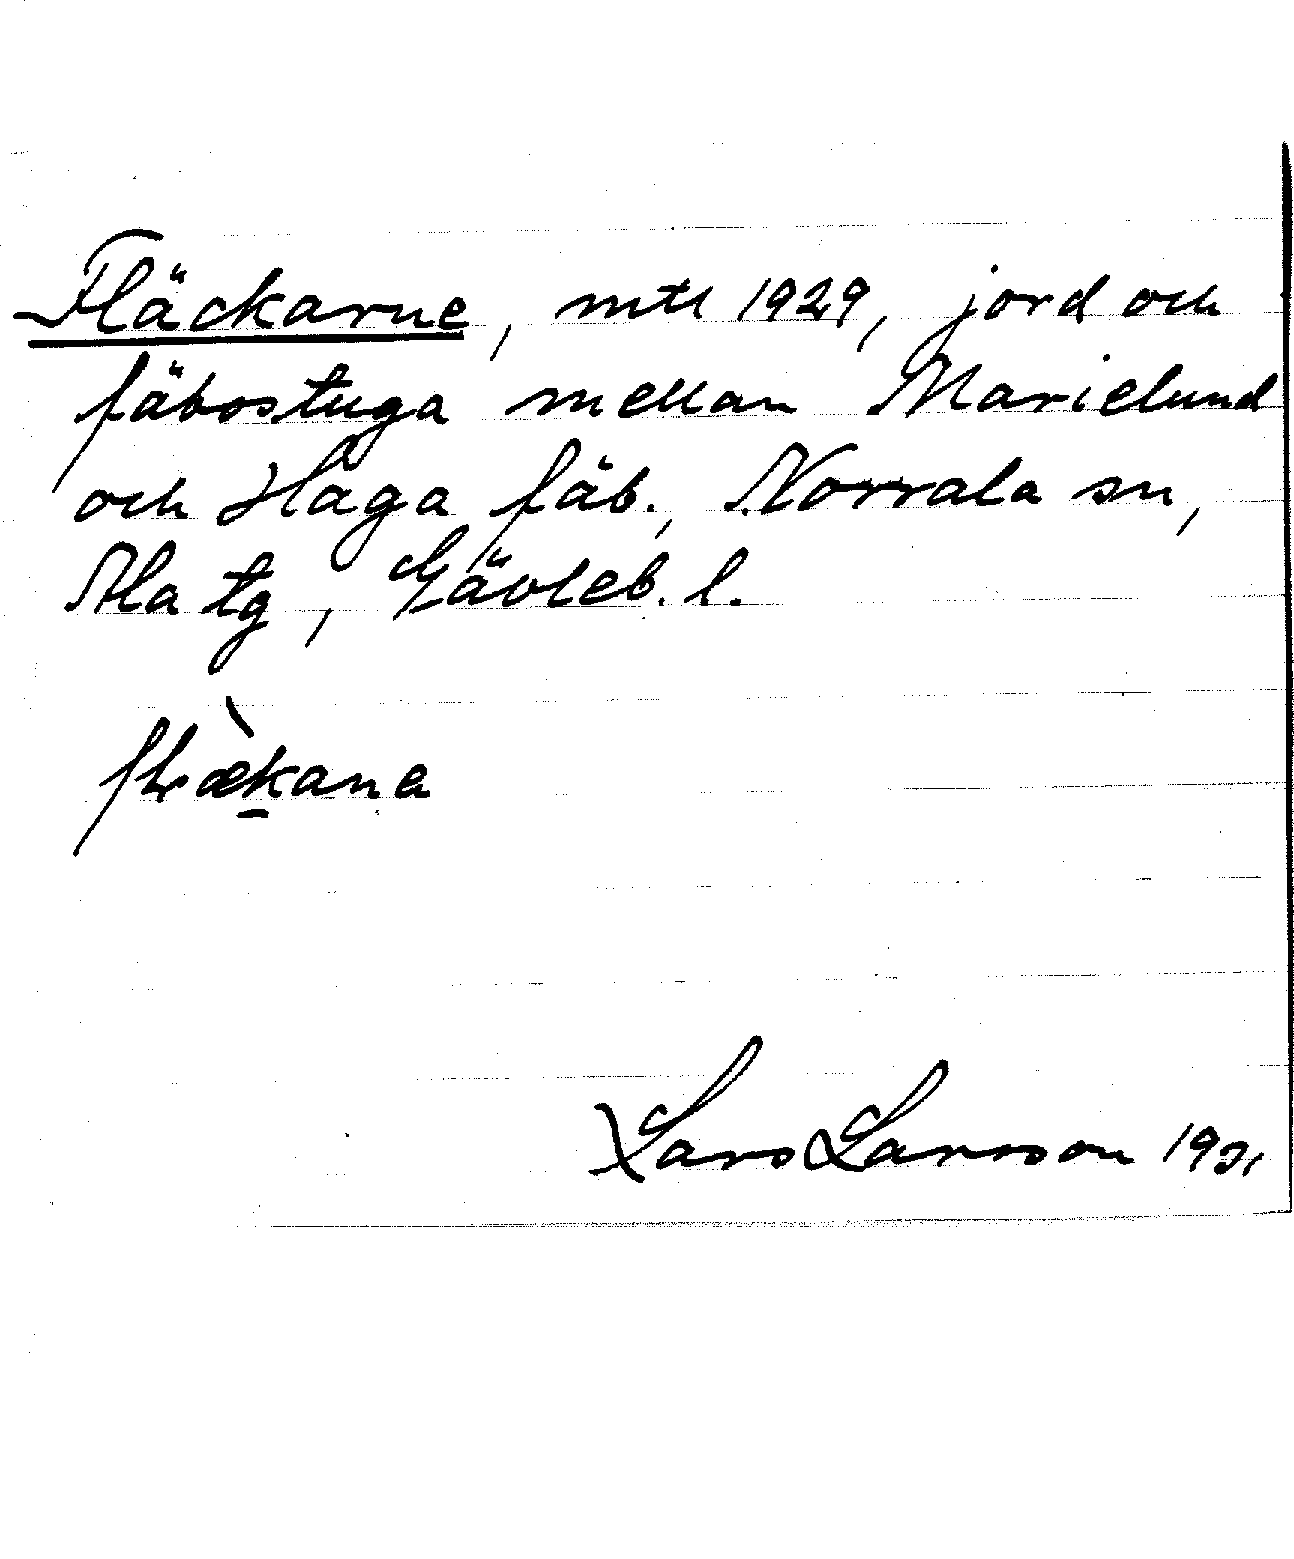 Fläckarne, mtl 1929, jord och
fäbostuga mellan Marielund
och Haga fäb., Norrala sn,
Ala tg, Gävleb. l.
Lars Larsson